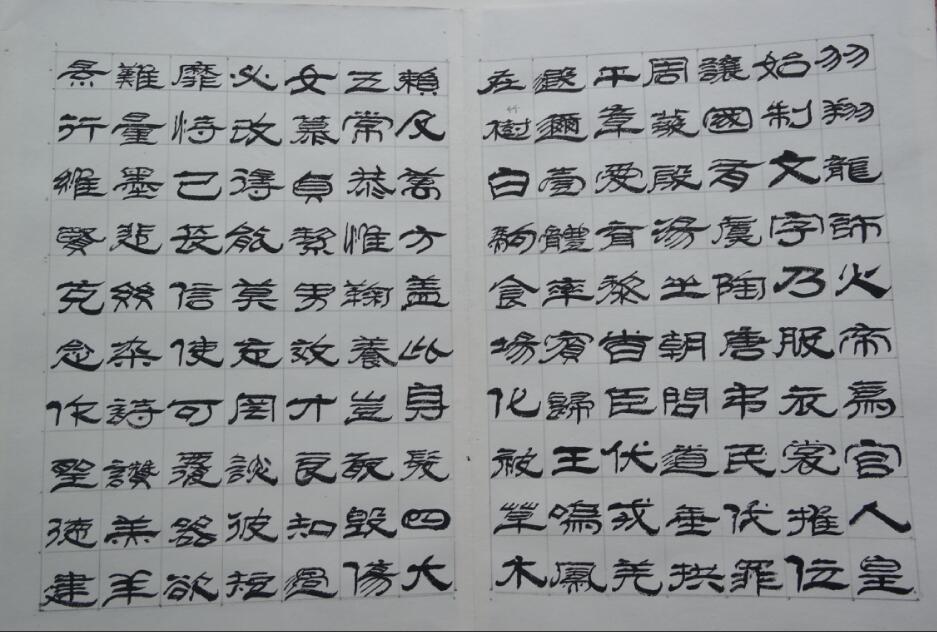 羽翔龍師火帝爲官人皇
始制文字乃服衣裳推位
讓國有虞陶唐弔民伐罪
周發殷湯坐朝問道垂拱
平章愛育黎首臣伏戎羌
遐邇壹體率賓歸王鳴鳳
在樹白駒食場化被草木
竹
賴及萬方盖此身髮四大
五常恭惟鞠養豈敢毀傷
女慕貞絜男效才良知過
必改得能莫忘罔談彼短
靡恃己長信使可覆器欲
難量墨悲絲染詩讚羔羊
景行維賢克念作聖德建